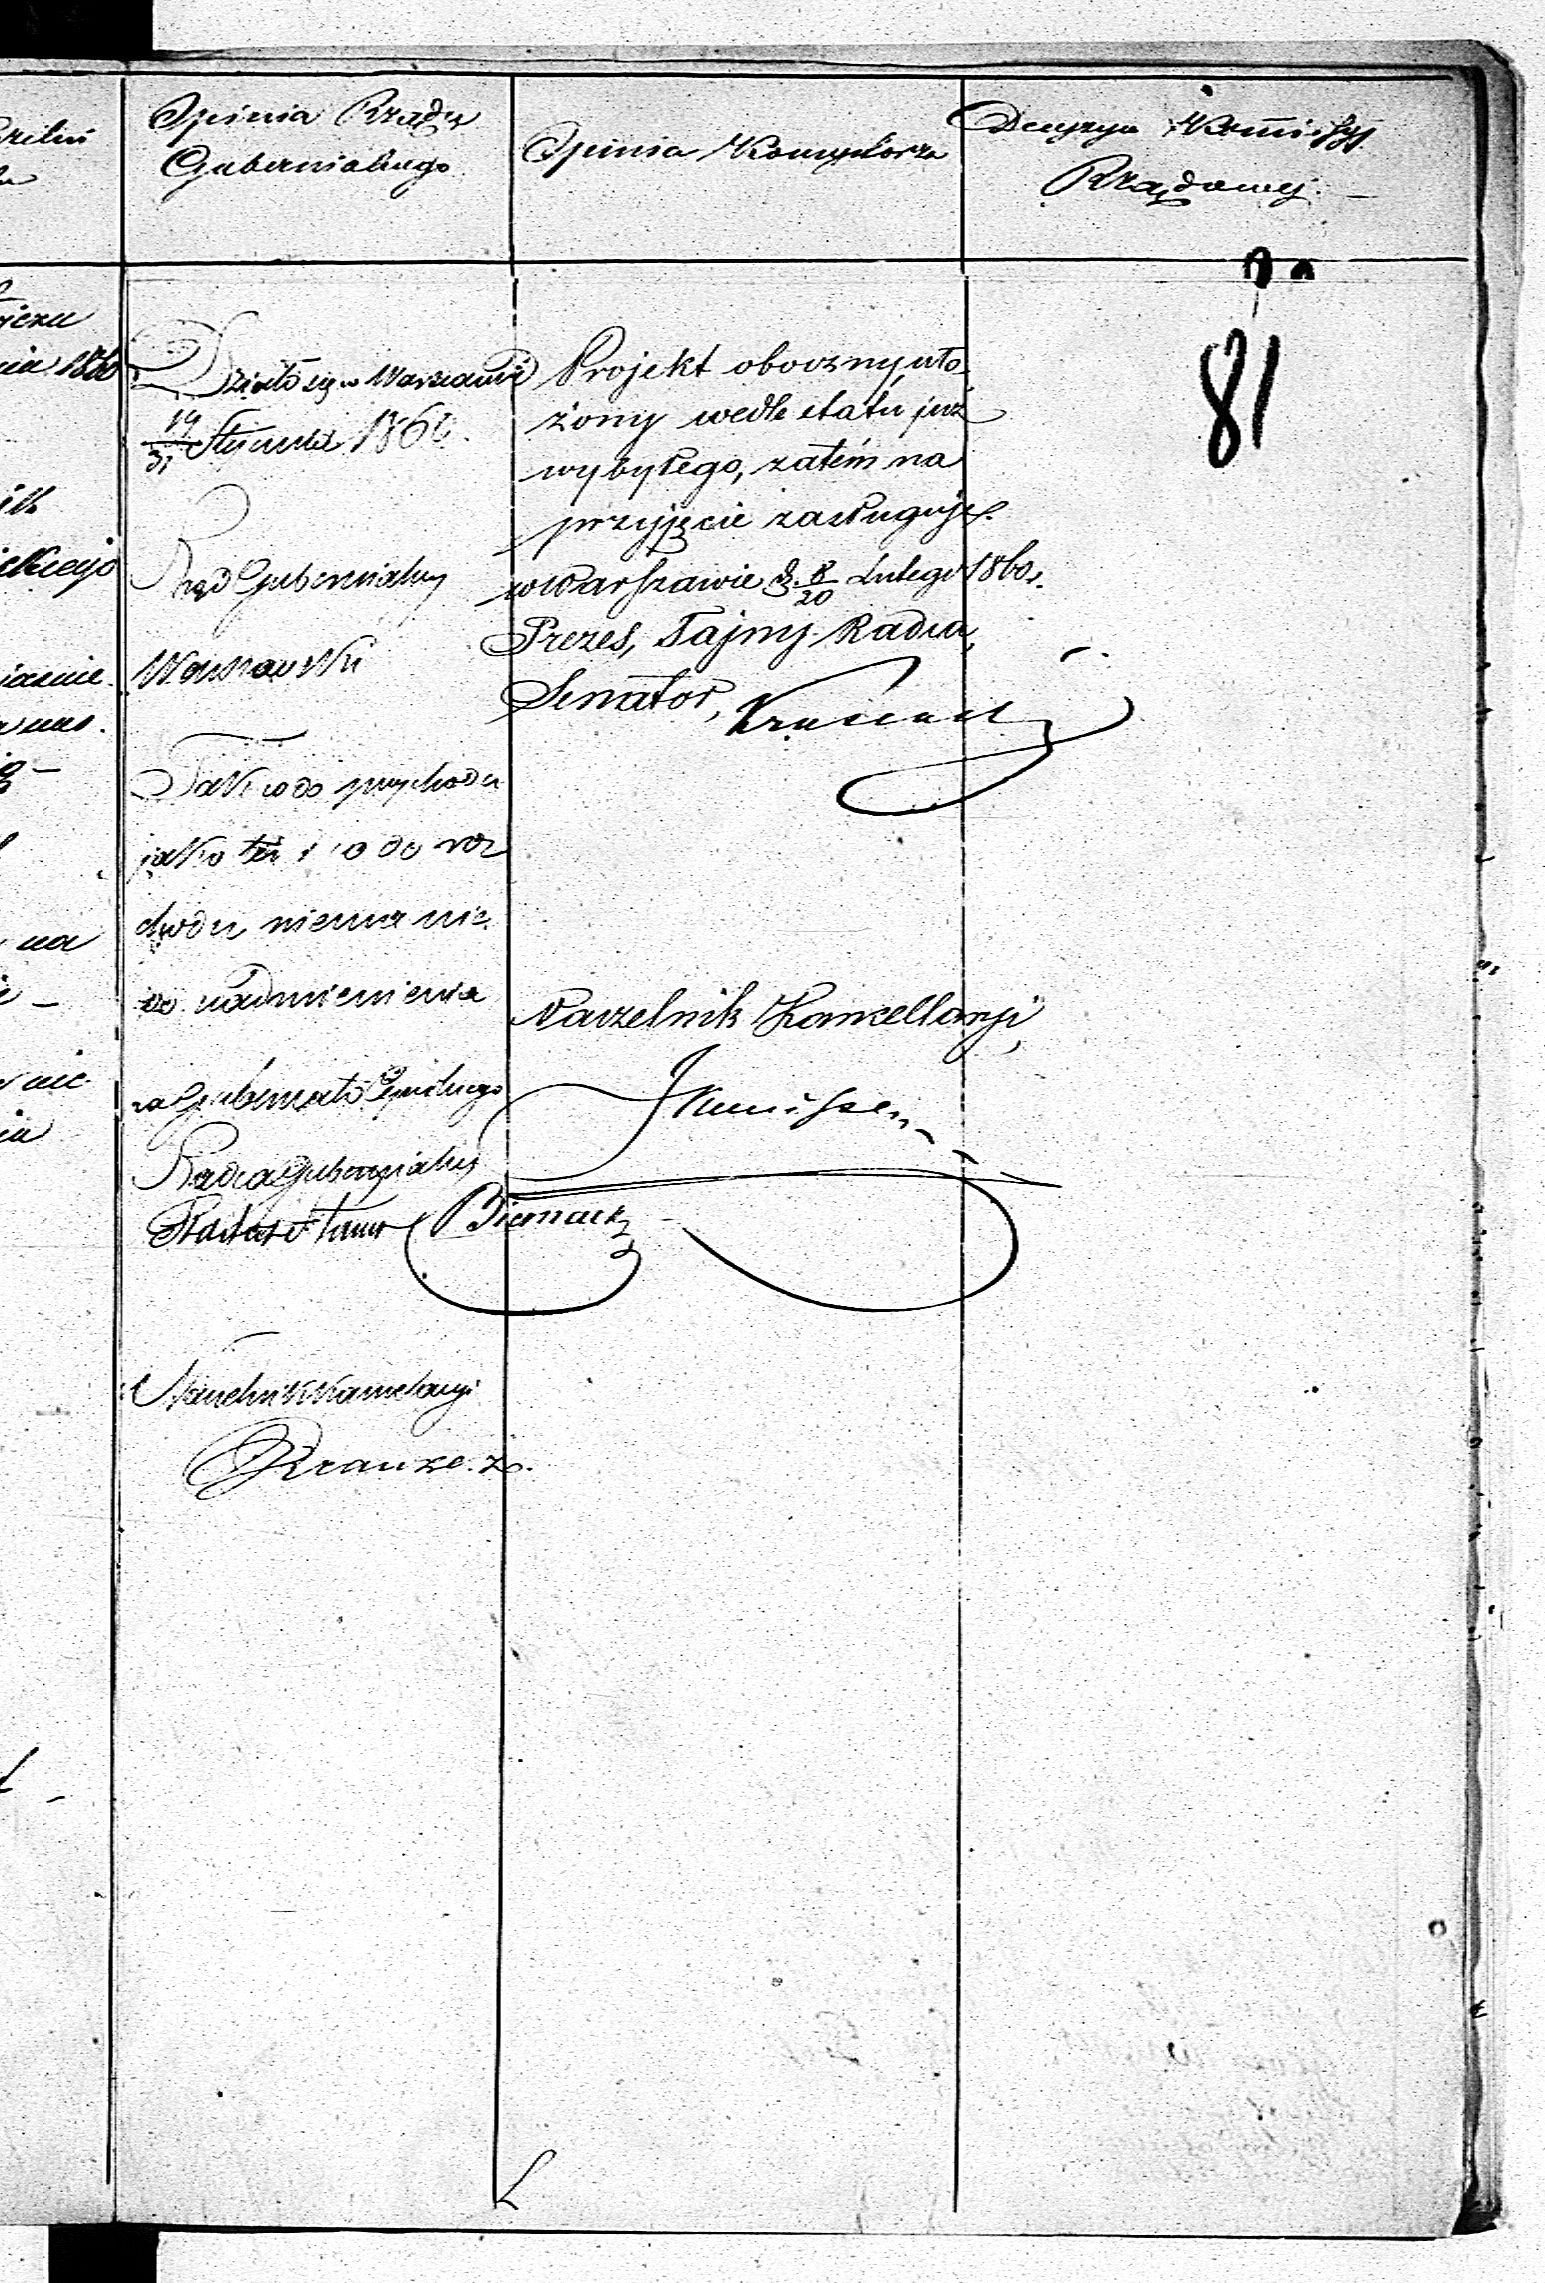 Opinia Rządu
Gubernialnego
Opinia Konsystorza
Decyzya Kommissyi
Rządowej.
81
Działo się w Warszawie
19/31 Stycznia 1860.
Rząd Gubernialny
Warszawski
Tak co do przychodu
jako też i co do roz
chodu niema nic
do nadmienienia
za Gubernatora Cywilnego
Radca Gubernialny
Radca Stanu Biernacki
Naczelnik Kancelaryi
Krauze. z.
Projekt oboczny, uło-
żony wedle etatu już
wybyłego, zatém na
przyjęcie zasługuje.
w Warszawie d. 8/20 Lutego 1860 r.
Prezes, Tajny Radca,
Senator,
Naczelnik Kancellaryi,
1860